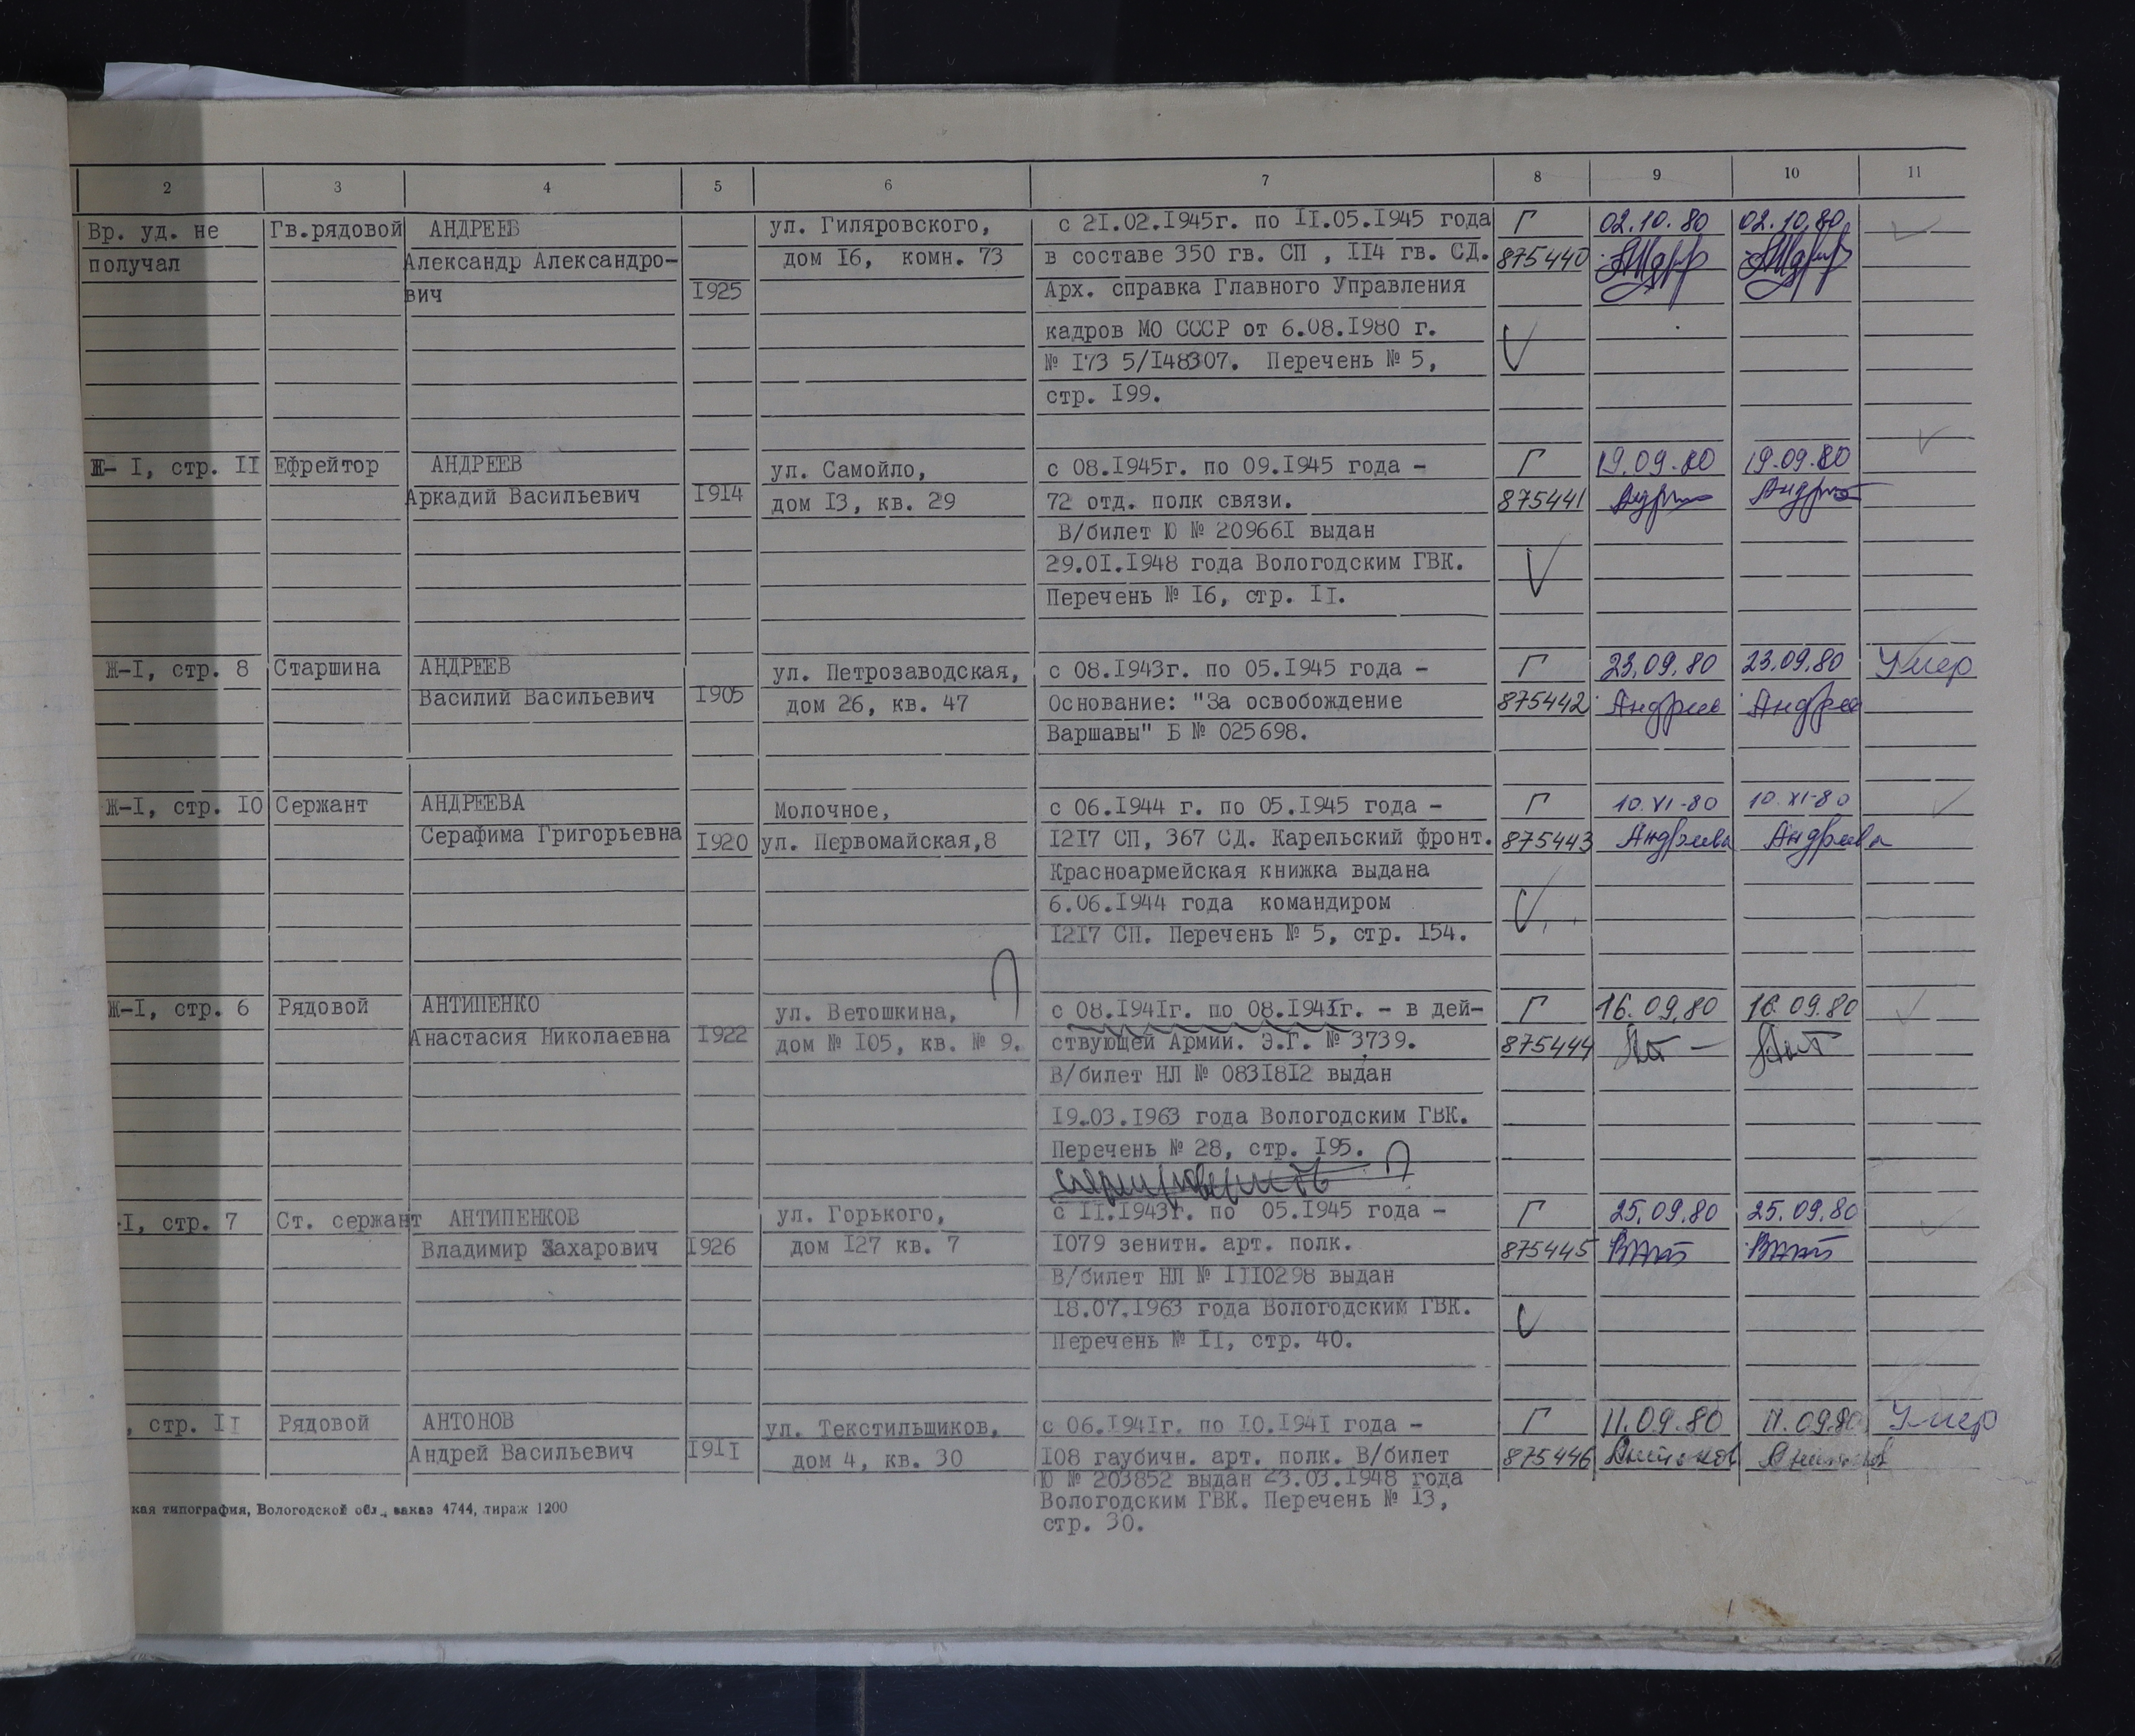 2 3 4 5 6 7 8 9 10 11
Вр. уд. не Гв.рядовой АНДРЕЕВ ул. Гиляровского, с 2I.02.I945г. по II.05.I945 года Г 02.10.80 02.10.80.
получал Александр Александро- дом I6, комн. 73 в составе 350 гв. СП , II4 гв. СД. 875440
вич I925 Арх. справка Главного Управления
кадров МО СССР от 6.08.I980 г.
№ I73 5/I48307. Перечень № 5,
стр. I99.
Ж- I, стр. II Ефрейтор АНДРЕЕВ ул. Самойло, с 08.I945г. по 09.I945 года - Г 19.09.80 19.09.80
Аркадий Васильевич I9I4 дом I3, кв. 29 72 отд. полк связи. 875441
В/билет Ю № 20966I выдан
29.0I.I948 года Вологодским ГВК.
Перечень № I6, стр. II.
Ж-I, стр. 8 Старшина АНДРЕЕВ ул. Петрозаводская, с 08.I943г. по 05.I945 года - Г 23.09.80 23.09.80 Умер
Василий Васильевич I905 дом 26, кв. 47 Основание: "За освобождение 875442 Андреев Андреев
Варшавы" Б № 025698.
Ж-I, стр. I0 Сержант АНДРЕЕВА Молочное, с 06.I944 г. по 05.I945 года - Г 10.XI-80 10.XI-80
Серафима Григорьевна I920 ул. Первомайская,8 I2I7 СП, 367 СД. Карельский фронт. 875443 Андреева Андреева
Красноармейская книжка выдана
6.06.I944 года командиром
I2I7 СП. Перечень № 5, стр. I54.
Ж-I, стр. 6 Рядовой АНТИПЕНКО ул. Ветошкина, с 08.I94Iг. по 08.I945г. - в дей- Г 16.09.80 16.09.80
Анастасия Николаевна I922 дом № I05, кв. № 9. ствующей Армии. Э.Г. № 3739. 875444
В/билет НЛ № 083I8I2 выдан
I9.03.I963 года Вологодским ГВК.
Перечень № 28, стр. I95.
-I, стр. 7 Ст. сержант АНТИПЕНКОВ ул. Горького, с II.I943г. по 05.I945 года - Г 25.09.80 25.09.80
Владимир Захарович I926 дом I27 кв. 7 I079 зенитн. арт. полк. 875445
В/билет НЛ № III0298 выдан
I8.07.I963 года Вологодским ГВК.
Перечень № II, стр. 40.
, стр. II Рядовой АНТОНОВ ул. Текстильщиков, с 06.I94Iг. по I0.I94I года - Г 11.09.80 11.09.80 Умер
Андрей Васильевич I9II дом 4, кв. 30 I08 гаубичн. арт. полк. В/билет 875446 Антонов Антонов
Ю № 203852 выдан 23.03.I948 года
Вологодским ГВК. Перечень № I3,
стр. 30.
кая типография, Вологодской обл., заказ 4744, тираж 1200